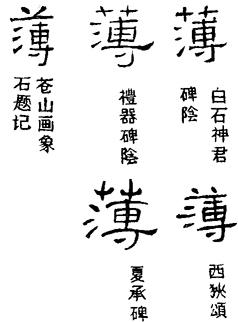 薄
白石神君
碑陰
薄
禮器碑陰
薄
苍山画象
石题记
薄
西狭頌
薄
夏承碑